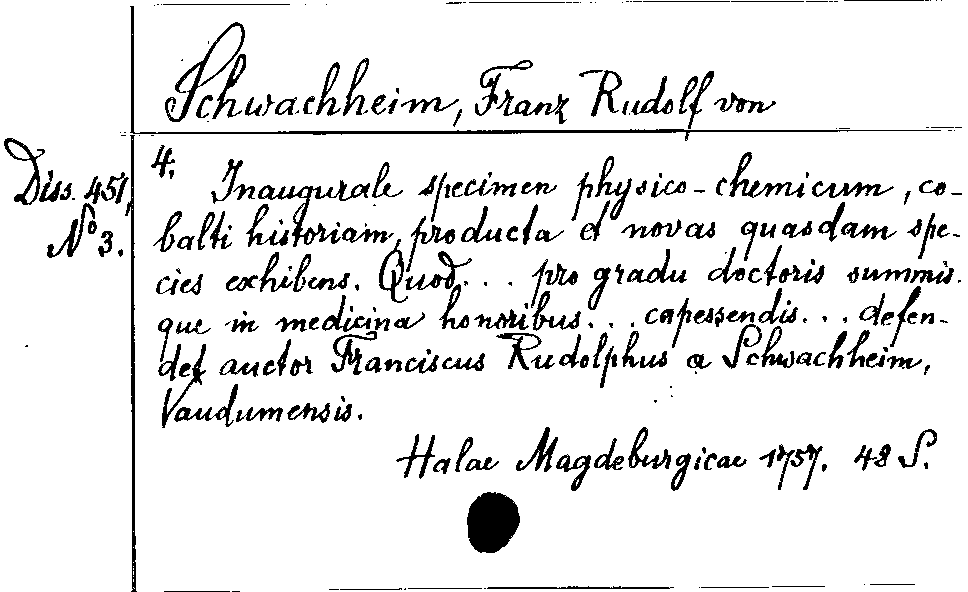 Schwachheim, Franz Rudolf von
Diss. 451,
No 3.
4.
Inaugurale specimen physico-chemicum, co-
balti historiam, producta et novas quasdam spe-
cies exhibens. Quod... pro gradu doctoris summis-
que in medicina honoribus... capessendis... defen-
det auctor Franciscus Rudolphus a Schwachheim,
Vaudumensis.
Halae Magdeburgicae 1757. 48 S.